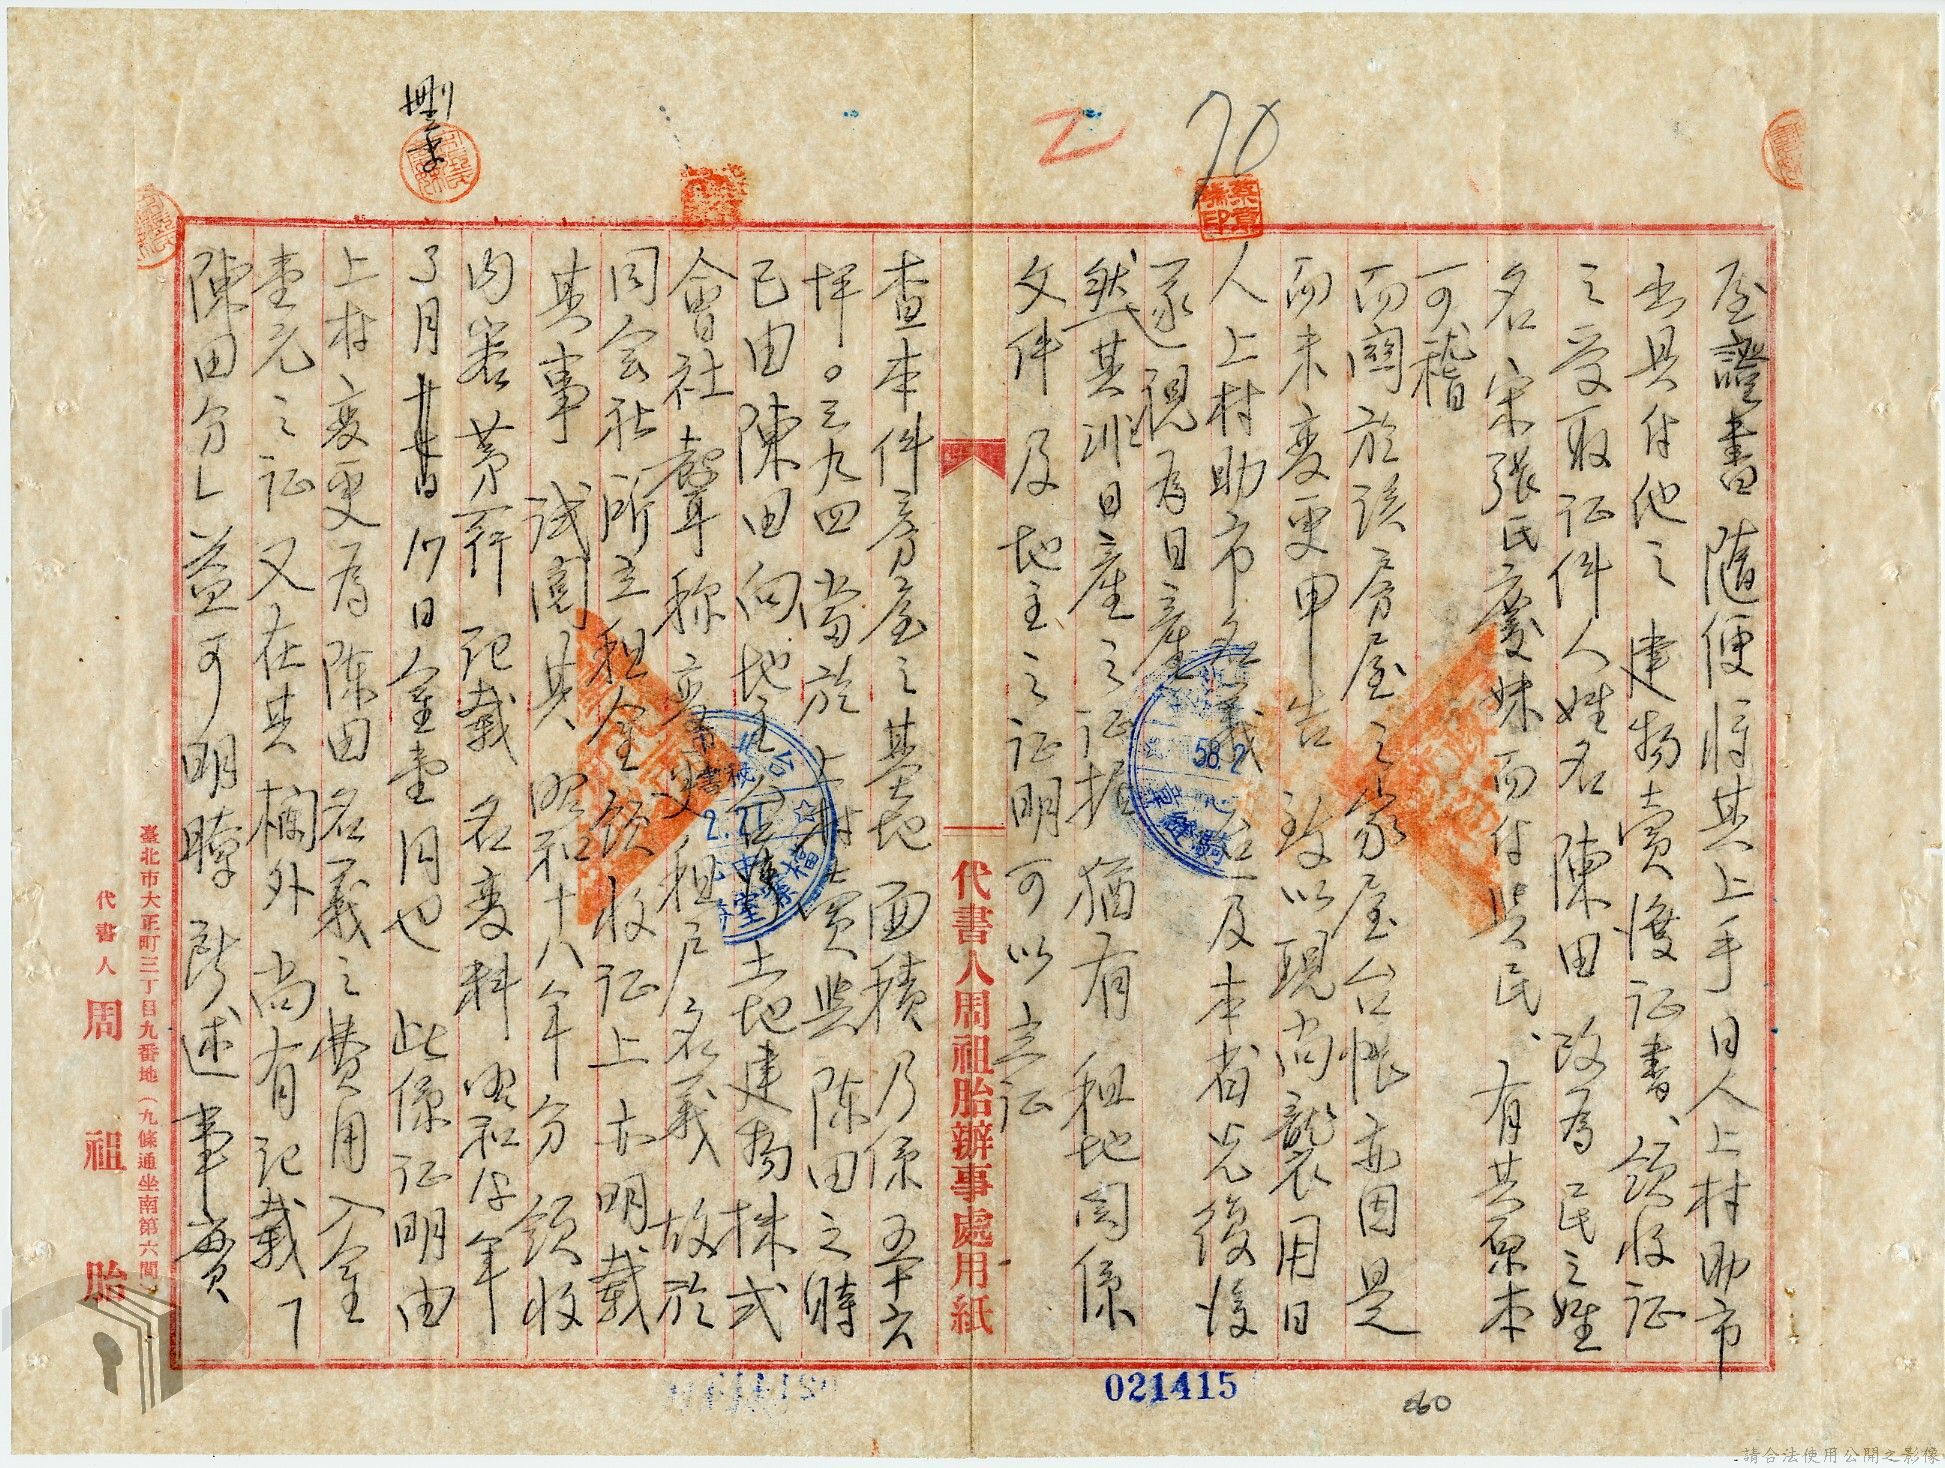 屋證書隨便將其上手日人上村助市
出具付他之建物賣渡证書、領收证
之受取证件人姓名陳田改為民之姓
名宋張氏慶妹而付與民、有其原本
可稽
而關於該房屋之家屋台帳亦因是
而未变更申告致以現尚襲用日
人上村助市名義 及本省光復後
遂視為日產
然其非日產之证据猶有租地関係
文件及地主之证明可以立证
查本件房屋之基地面積乃係五十六
坪〇三九四當於上村賣與陳田之時
已由陳田向地主 土地建物株式
會社聲称变更租户名義故於
同会社所立租金領收证上亦明載
其事試閲其昭和十八年分領收
内右芽 記載名变料昭和 年
了月 17日金壹円也 此係证明由
上村变更為陳田名義之費用入金
壹元之证又在其欄外尚有記載「
陳田分」益可明瞭所述事實
代書人周祖胎辦事處用紙
臺北市大正町三丁目九番地(九條通坐南第六間)
代書人 周祖胎
刪 字
70
蔡章麟印
58.2
2.21
021415
260
請合法使用公開之影像